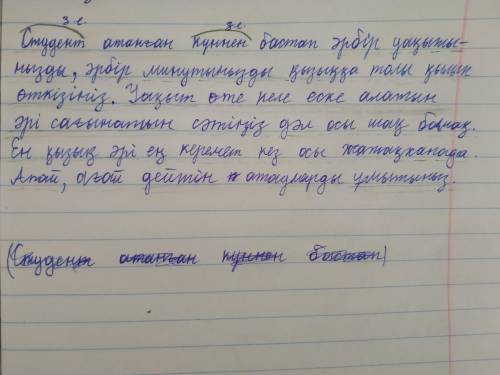 з.е. з.е.
Студент атанған күннен бастап әрбір уақыты-
ңызды, әрбір минутыңызды қызыққа толы қылып
өткізіңіз. Уақыт өте келе еске алатын
әрі сағынатын сәтіңіз дәл осы шақ болмақ.
Ең қызық әрі ең керемет кез осы жатақханада.
Апай, ағай дейтін атауларды ұмытыңыз.
(Студент атанған күннен бастап)